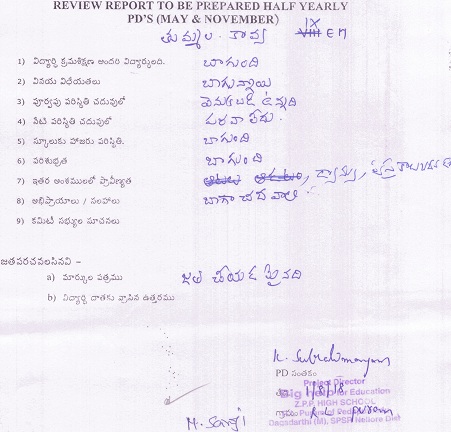 REVIEW REPORT TO BE PREPARED HALF YEARLY
PD'S (MAY & NOVEMBER)
తుమ్మల. కావ్య IX VIII EM
1) విద్యార్థి క్రమశిక్షణ అందరి విద్యార్థులది. బాగుంది
2) వినయ విధేయతలు బాగున్నాయి
3) పూర్వపు పరిస్థితి చదువులో వెనుకబడి ఉన్నది
4) నేటి పరిస్థితి చదువులో పరవాలేదు.
5) స్కూలుకు హాజరు పరిస్థితి. బాగుంది
6) పరిశుభ్రత బాగుంది
7) ఇతర అంశములలో ప్రావీణ్యత డ్యాన్సు,
8) అభిప్రాయాలు / సలహాలు బాగా చదవాలి
9) కమిటీ సభ్యుల సూచనలు
జతపరచవలసినవి –
a) మార్కుల పత్రము జత చేయడమైనది
b) విద్యార్థి దాతకు వ్రాసిన ఉత్తరము
K. Subrahmanyam
PD సంతకం
Project Director
తేది 1/8/18
Big Help for Education
Z.P.P. HIGH SCHOOL
గ్రామం
Dagadarthi (M), SPSR Nellore Dist